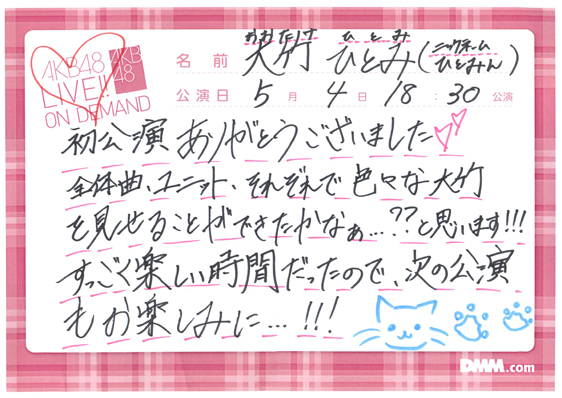 AKB48
LIVE!!
ON DEMAND
AKB
48
おおたけ ひとみ
名前 大竹 ひとみ(ニックネーム ひとみん)
公演日 5月4日 18:30 公演
初公演ありがとうございました
全体曲、ユニット、それぞれで色々な大竹
を見せることができたかなぁ…??と思います!!!
すっごく楽しい時間だったので、次の公演
もお楽しみに…!!!
DMM.com